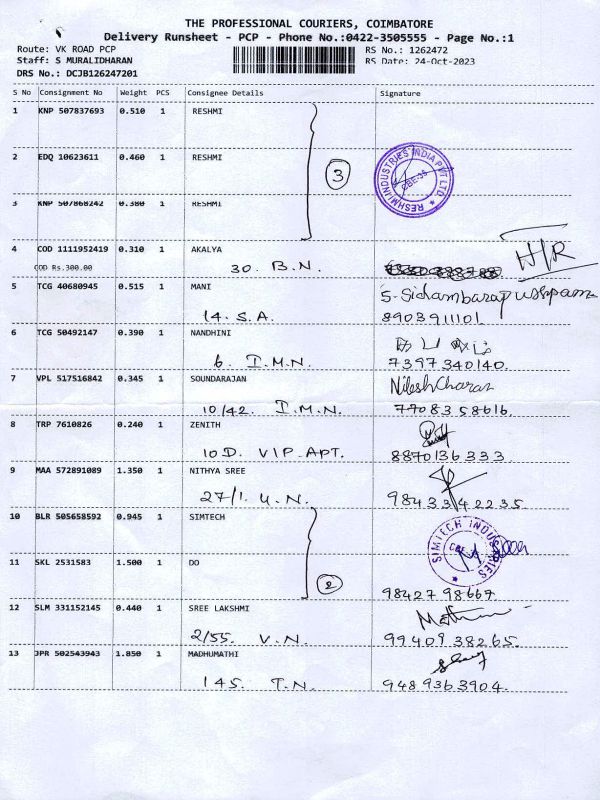 THE PROFESSIONAL COURIERS, COIMBATORE
Delivery Runsheet - PCP - Phone No.:0422-3505555 - Page No.:1
Route: VK ROAD PCP RS No.: 1262472
Staff: S MURALIDHARAN RS Date: 24-Oct-2023
DRS No.: DCJB126247201
S No Consignment No Weight PCS Consignee Details Signature
1 KNP 507837693 0.510 1 RESHMI
2 EDQ 10623611 0.460 1 RESHMI
3
RESHMI INDUSTRIES INDIA PVT LTD CBE-35
3 KNP 507868242 0.380 1 RESHMI
4 COD 1111952419 0.310 1 AKALYA H/R
COD Rs.300.00 30. B.N.
5 TCG 40680945 0.515 1 MANI S-Sidambarapushpam
14. S.A. 8903911101
6 TCG 50492147 0.390 1 NANDHINI
6. I.M.N. 7397340140.
7 VPL 517516842 0.345 1 SOUNDARAJAN NileshCharan
10/42. I.M.N. 7708358616.
8 TRP 7610826 0.240 1 ZENITH
10D. VIP APT. 8870136333
9 MAA 572891089 1.350 1 NITHYA SREE
27/1. U.N. 98433 42235
10 BLR 505658592 0.945 1 SIMTECH
SIMTECH INDUSTRIES CBE
11 SKL 2531583 1.500 1 DO
2
98427 98667
12 SLM 331152145 0.440 1 SREE LAKSHMI
2/55. V.N. 99409 38265.
13 JPR 502543943 1.850 1 MADHUMATHI
145. T.N. 9489363904.